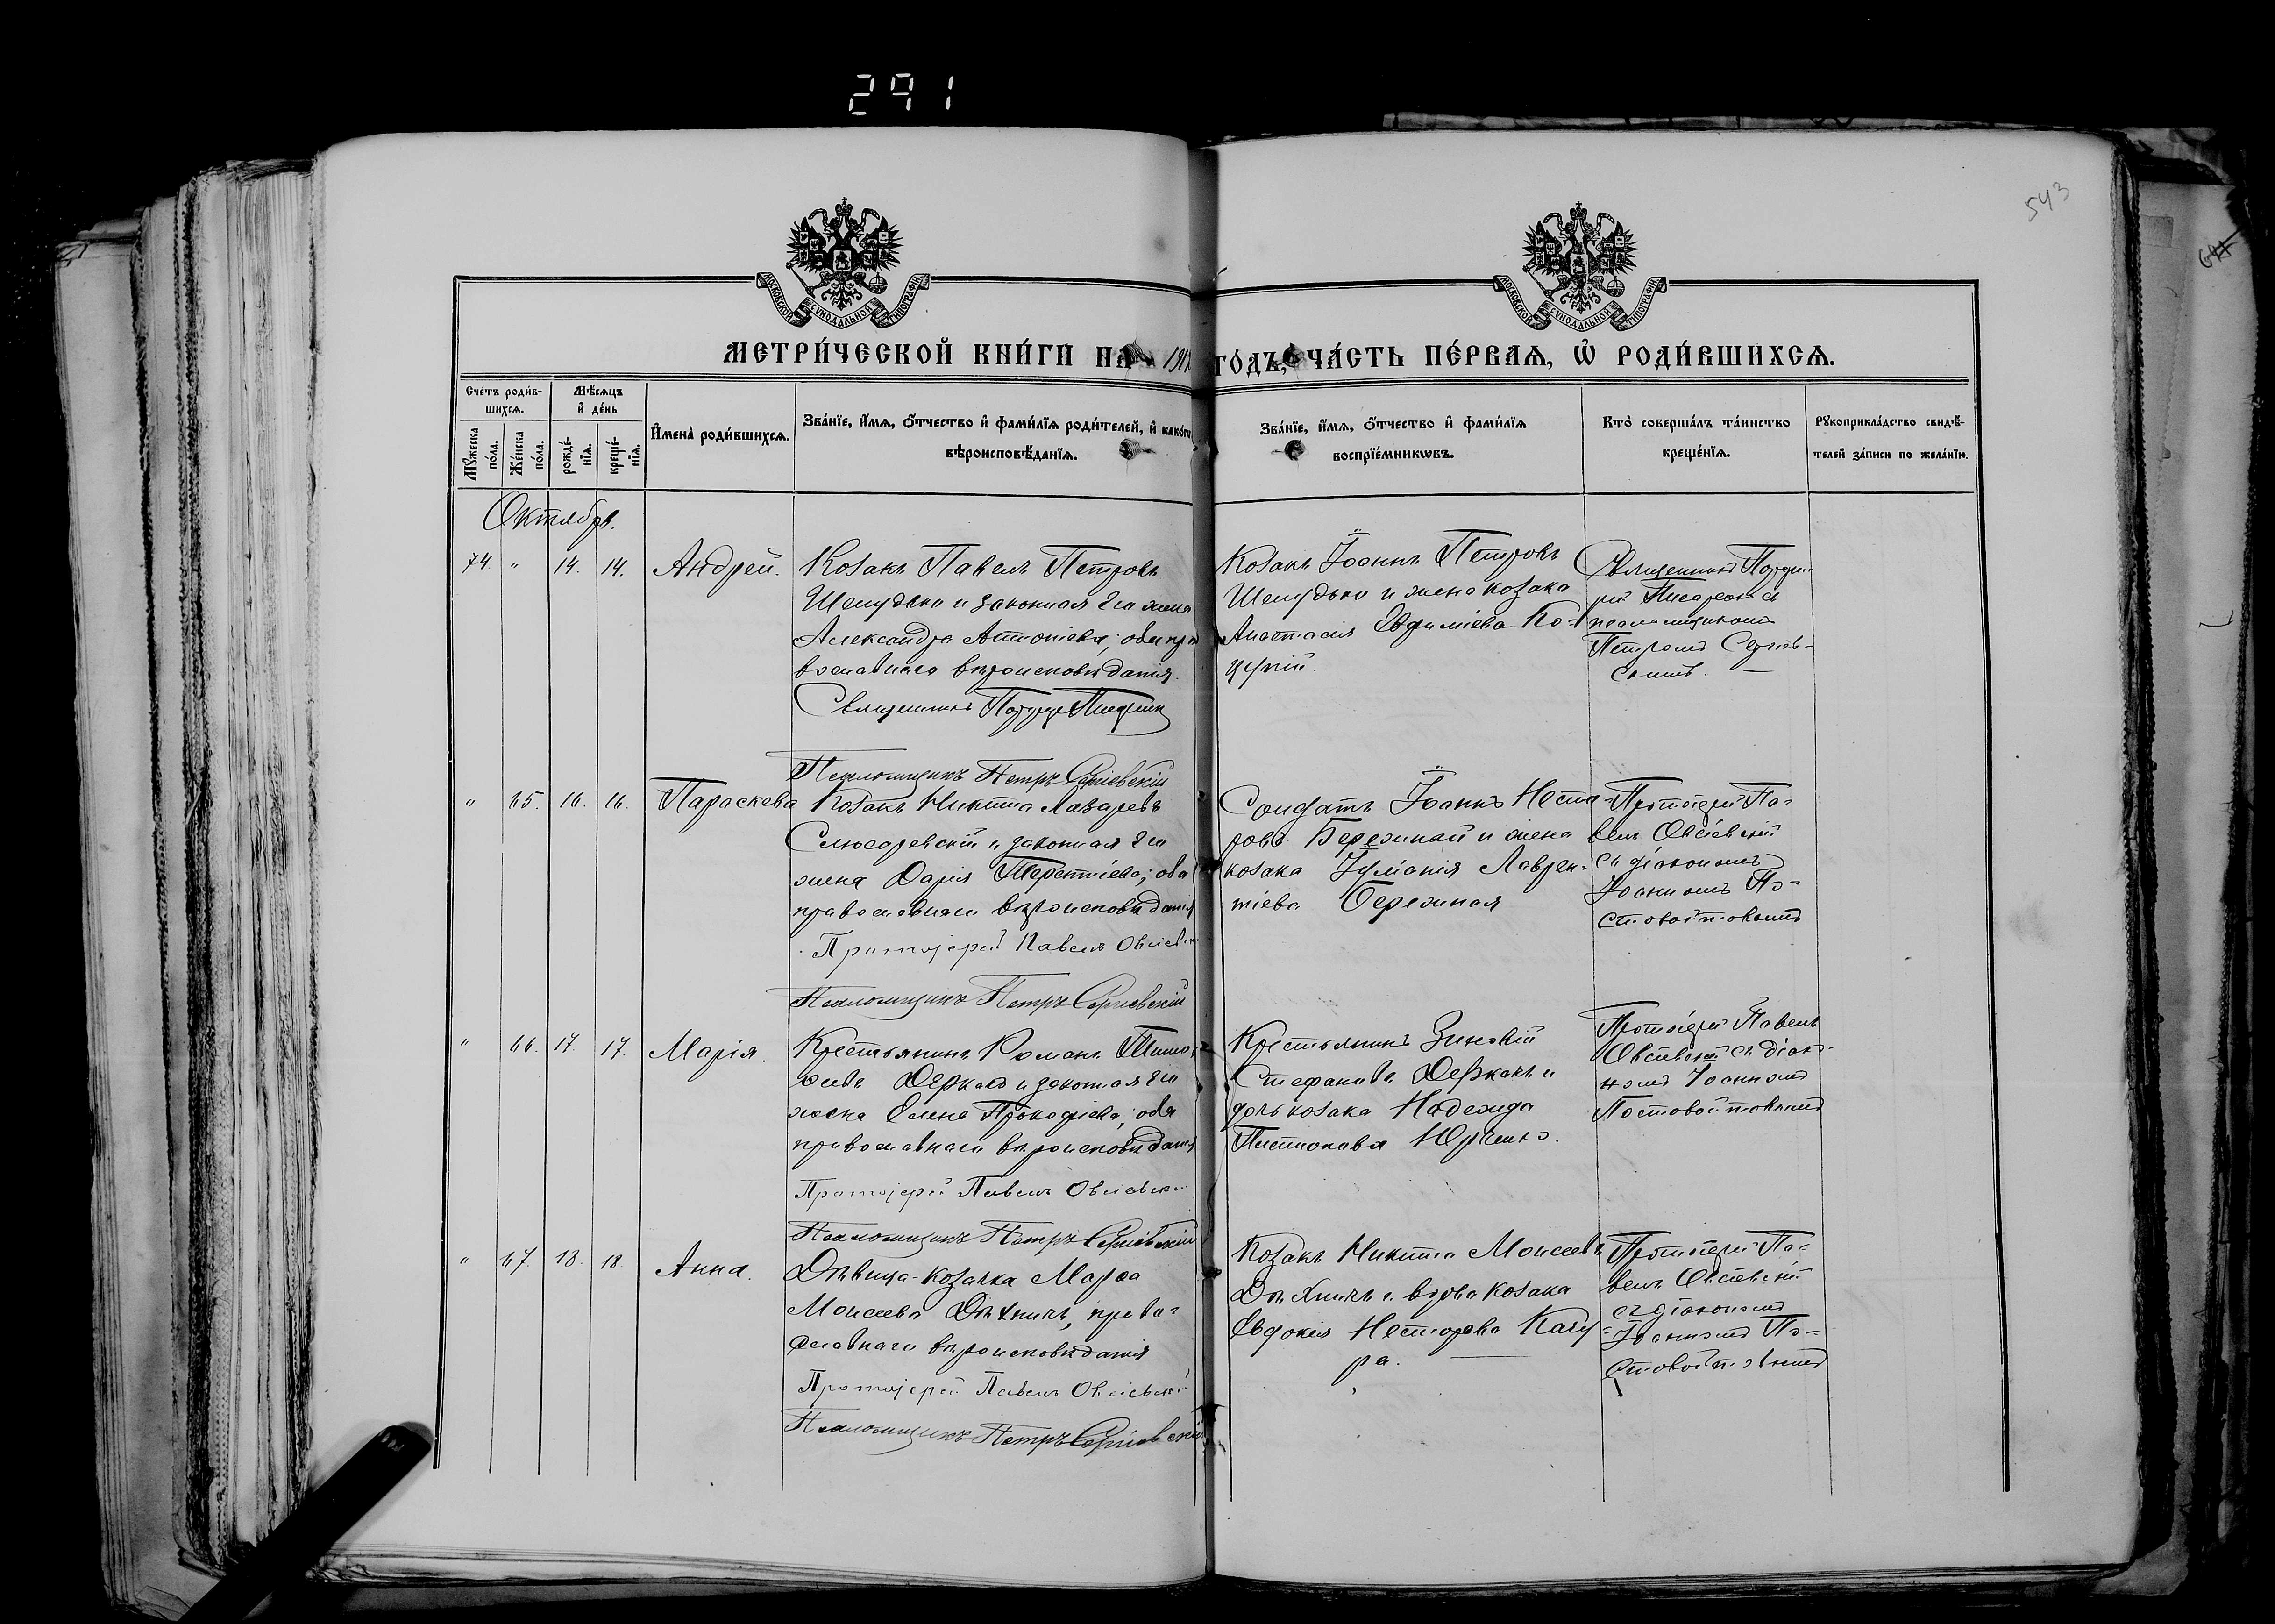 291
543
МОСКОВСКОЙ СУНОДАЛЬНОЙ ТИПОГРАФІИ
МОСКОВСКОЙ СУНОДАЛЬНОЙ ТИПОГРАФІИ
МЕТРИ́ЧЕСКОЙ КНИ́ГИ НА 191 ГО́ДЪ, ЧА́СТЬ ПЕ́РВАЯ, Ѡ РОДИ́ВШИХСЯ.
Сче́тъ роди́в-
шихся.
Мѣ́сяцъ
и де́нь
Му́жеска
по́ла.
Же́нска
по́ла.
рожде́-
нїя.
креще́-
нїя.
И́мена̀ роди́вшихся.
Зва́нїе, и́мя, о́тчество и фами́лїя роди́телей, и како́гѡ
вѣроисповѣ́данїя.
Зва́нїе, и́мя, о́тчество и фами́лїя
воспрїе́мникѡвъ.
Кто̀ соверша́лъ та́инство
креще́нїя.
Рꙋкоприкла́дство свидѣ́-
телей за́писи по жела́нїю.
Октябрь.
74. " 14. 14. Андрей.
Козакъ Павелъ Петровъ
и законная его жена
Александра Антоніева; оба пра
вославнаго вѣроисповѣданія.
Священникъ
Псаломщикъ Петръ Сергіевскій
Козакъ Іоаннъ Петровъ
и жена козака
Анастасія Евфиміева Ко-
Священникъ
псаломщикомъ
Петромъ Сергіев-
скимъ.
" 65. 16. 16. Параскева
Козакъ Никита Лазаревъ
Слюсаревскій и законная его
жена Дарія Терентіева; оба
православнаго вѣроисповѣданія
Протоіерей Павелъ Овсіевск
Псаломщикъ Петръ Сергіевскій
Солдатъ Іоаннъ Несто-
ровъ Бережный и жена
козака Іуліанія Лаврен-
тіева Бережная
Протоіерей Па-
велъ Овсіевскій
съ діакономъ
Іоанномъ По-
стовойтовымъ
" 66. 17. 17. Марія.
Крестьянинъ Романъ Тимо
Деркачъ и законная его
жена Елена Прокофіева; оба
православнаго вѣроисповѣданія
Протоіерей Павелъ Овсіевск
Псаломщикъ Петръ Сергіевскій
Крестьянинъ Зиновій
Стефановъ Деркачъ и
дочь козака Надежда
Юрченко.
Протоіерей Павелъ
Овсіевскій съ діако-
номъ Іоанномъ
Постовойтовымъ
" 67. 18. 18. Анна.
Дѣвица-козачка Марѳа
Моисеева Дѣхничъ, право-
славнаго вѣроисповѣданія
Протоіерей Павелъ Овсіевскій
Псаломщикъ Петръ Сергіевскій
Козакъ Никита Моисеевъ
Дѣхничъ и вдова козака
Евдокія Несторова Качу
ра.
Протоіерей Па-
велъ Овсіевскій
съ діакономъ
Іоанномъ По-
стовойтовымъ